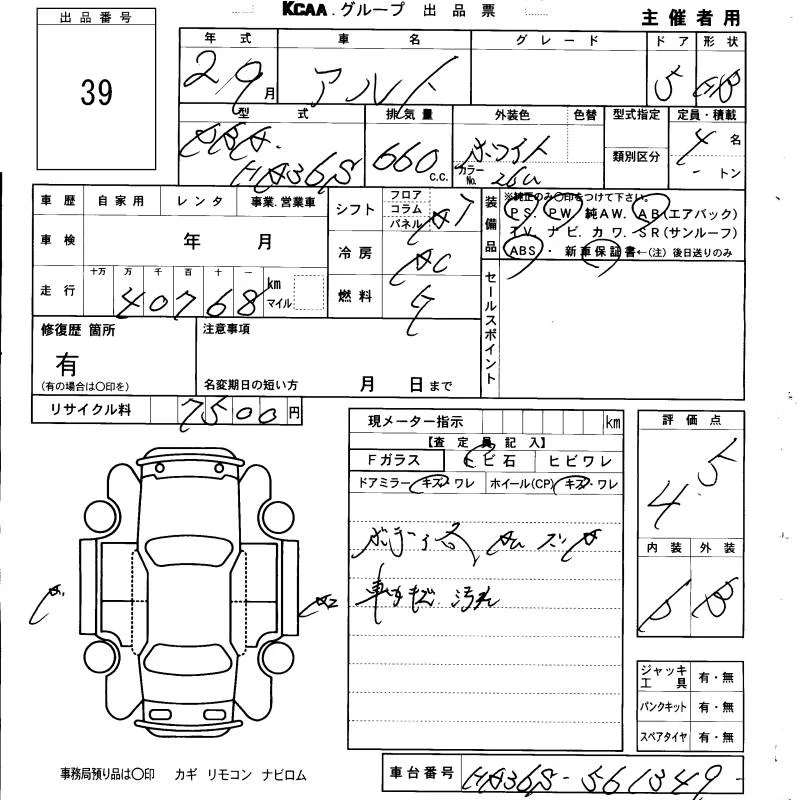 KCAA.グループ 出品票
主催者用
出品番号
39
年式 車名 グレード ドア 形状
29月 アルト 5 HB
型式 排気量 外装色 色替 型式指定 定員・積載
DBA-
HA36S
660 c.c.
ホワイト
カラーNo. 26U
類別区分
4名
-トン
車歴 自家用 レンタ 事業.営業車
車検 年 月
走行 十万 万 千 百 十 一
40768 km
マイル
シフト フロア コラム パネル AT
冷房 AC
燃料
装備品 ※純正のみ〇印をつけて下さい。
PS. PW. 純AW. AB(エアバック)
TV. ナビ. カワ. SR(サンルーフ)
ABS・新車保証書←(注)後日送りのみ
セールスポイント
修復歴 箇所
有
(有の場合は〇印を)
注意事項
名変期日の短い方 月 日まで
リサイクル料 7500円
現メーター指示 km
【査定員記入】
Fガラス トビ石 ヒビワレ
ドアミラー キズ・ワレ ホイール(CP) キズ・ワレ
車内キズ.汚れ
評価点
4.5
内装 外装
B B
A1
A2
ジャッキ工具 有・無
パンクキット 有・無
スペアタイヤ 有・無
事務局預り品は〇印 カギ リモコン ナビロム
車台番号 HA36S-561349-